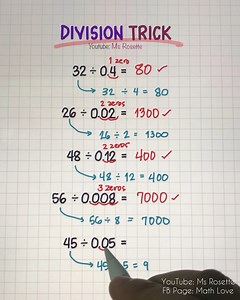 DIVISION TRICK
Youtube: Ms Rosette
1 zero
32 ÷ 0.4 = 80 ✓
32 ÷ 4 = 80
2 zeros
26 ÷ 0.02 = 1300 ✓
26 ÷ 2 = 1300
2 zeros
48 ÷ 0.12 = 400 ✓
48 ÷ 12 = 400
3 zeros
56 ÷ 0.008 = 7000 ✓
56 ÷ 8 = 7000
45 ÷ 0.05 =
45 ÷ 5 = 9
YouTube: Ms Rosette
FB Page: Math Love